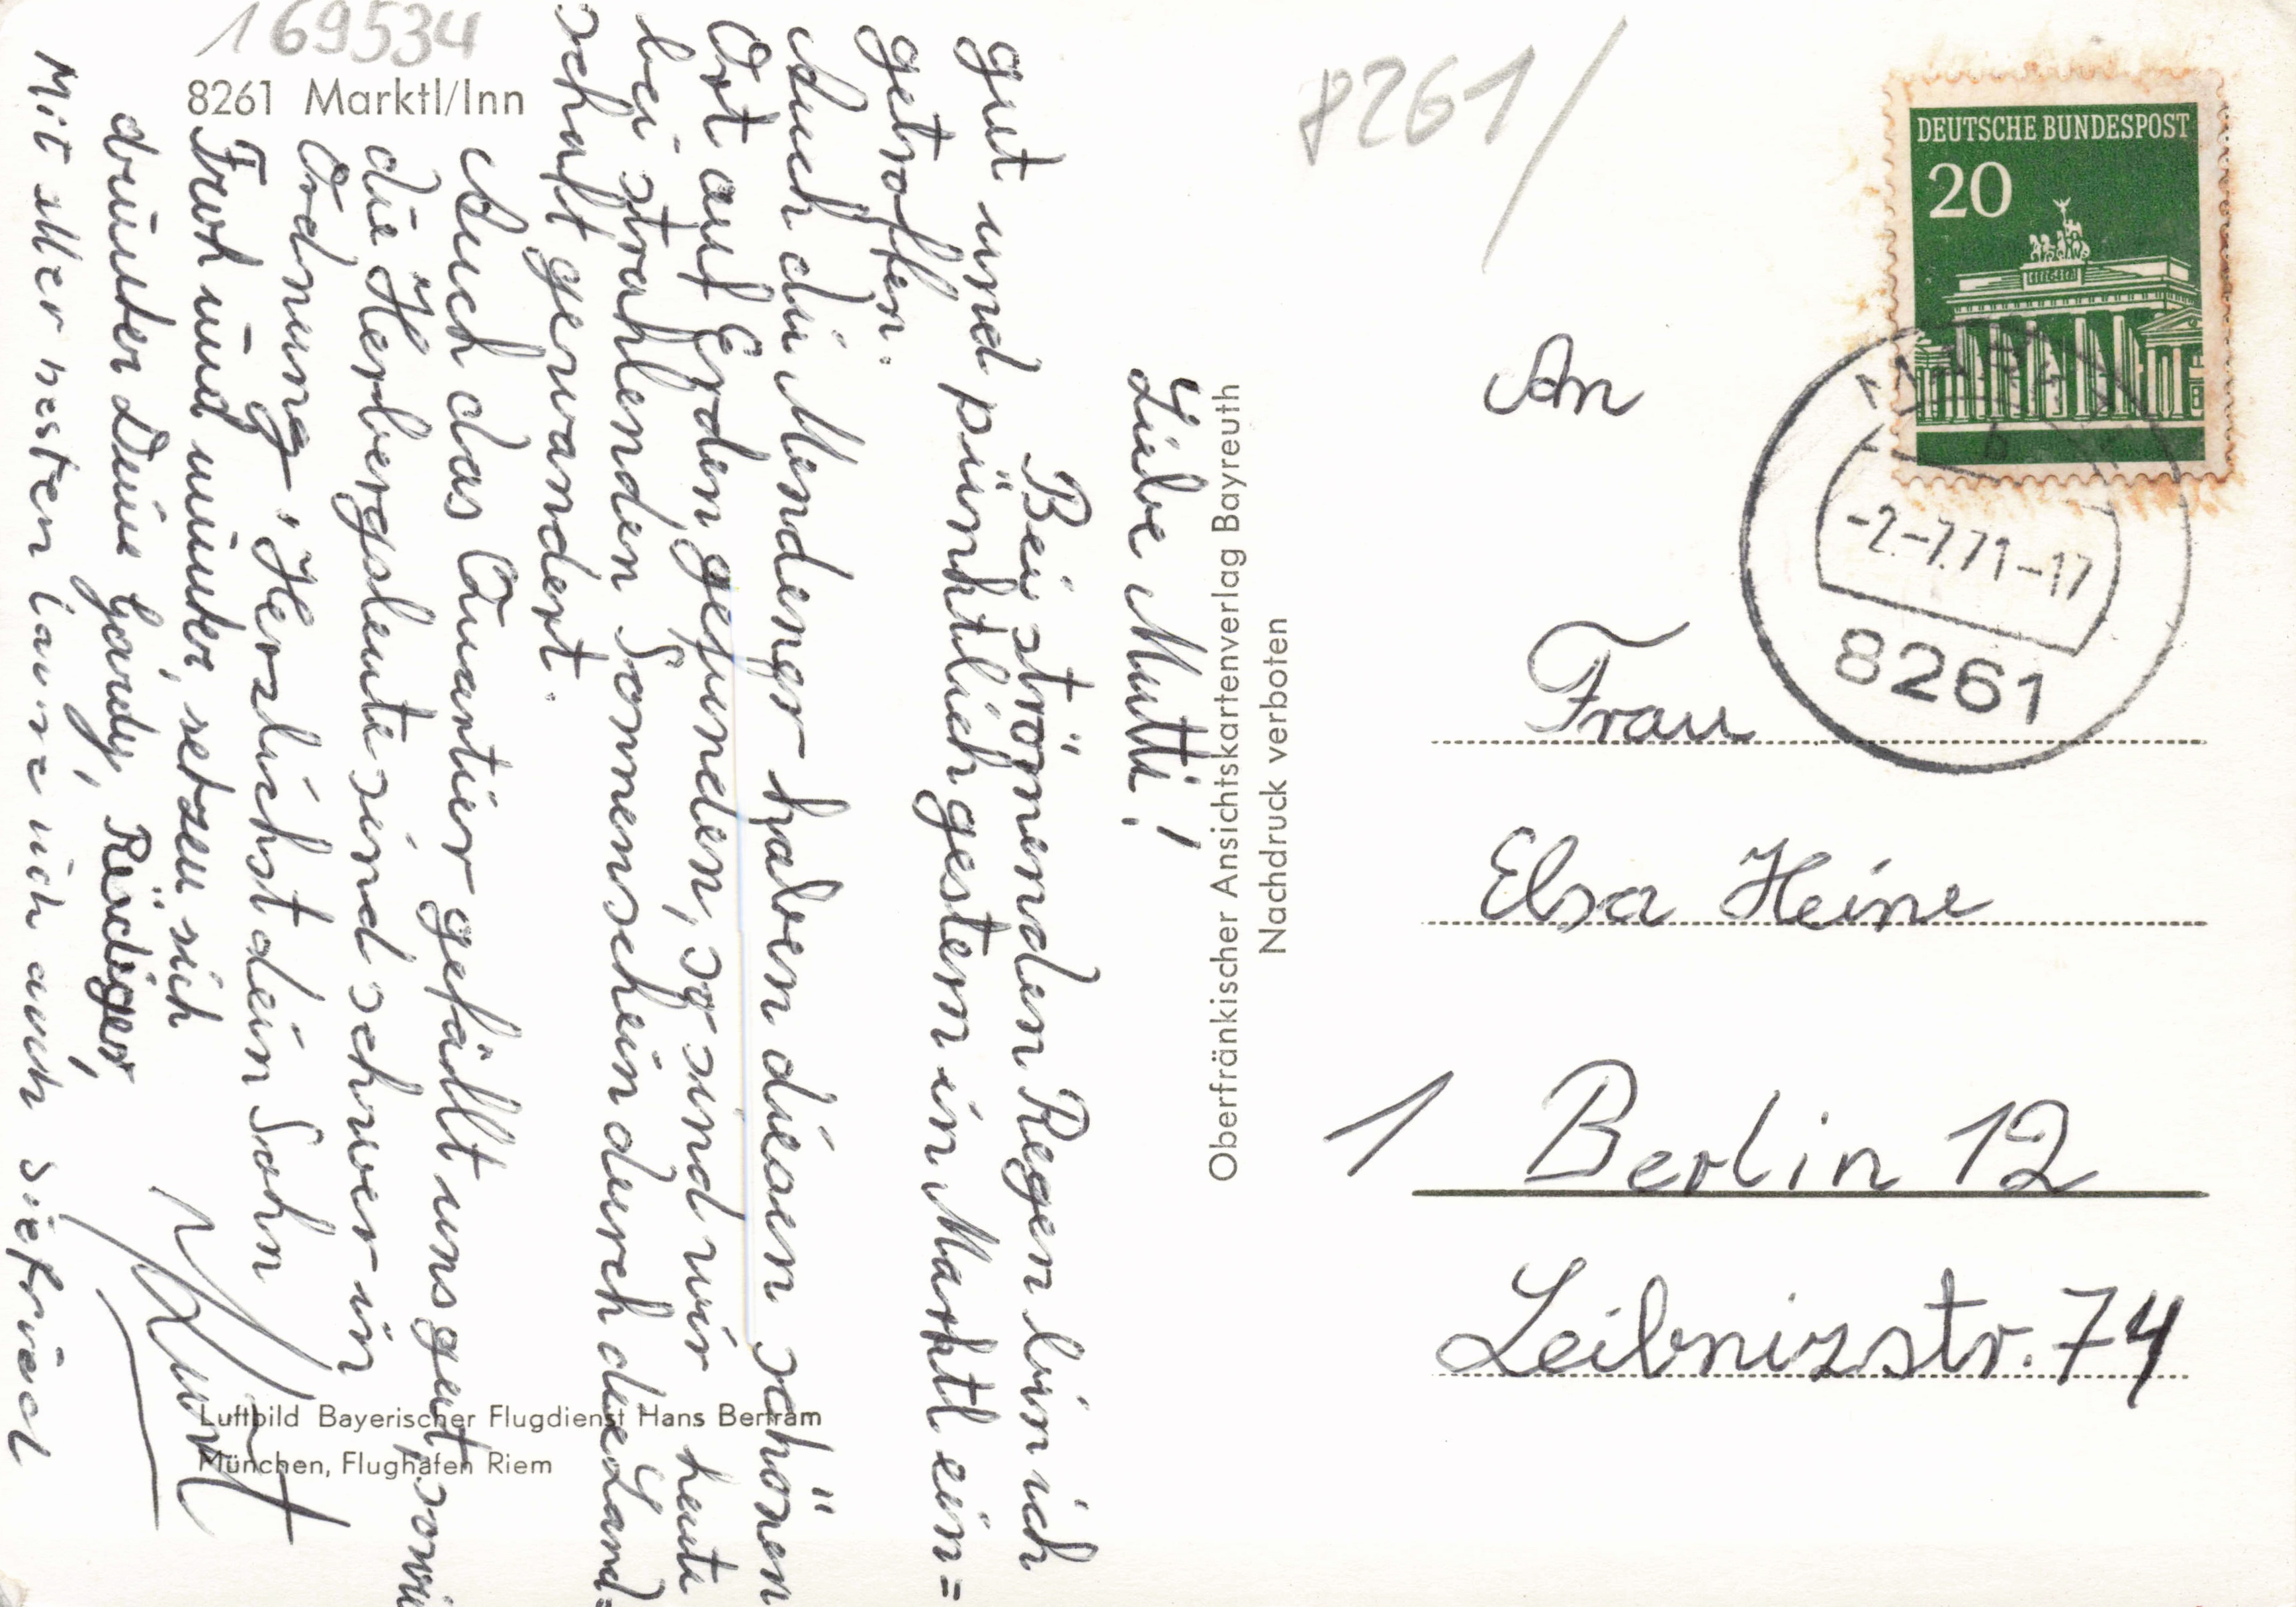 169534
8261 Marktl/Inn
Liebe Mutti!
Bei strömenden Regen bin ich
gut und pünktlich gestern in Marktl ein=
getroffen.
Auch die Mendener haben diesen schönen
Ort auf Erden gefunden, so sind wir heute
bei strahlenden Sonnenschein durch die Land=
schaft gewandert.
Auch das Quartier gefällt uns gut, sowie
die Herbergsleute sind schwer in
Ordnung. Herzlichst dein Sohn
Kurt
Froh und munter, setzen sich
drunter Deine Gerdy, Rüdiger,
Mit aller besten Laune ich auch Siefried
Luftbild Bayerischer Flugdienst Hans Bertram
München, Flughafen Riem
Oberfränkischer Ansichtskartenverlag Bayreuth
Nachdruck verboten
8261/
DEUTSCHE BUNDESPOST
20
b
-2.-7.71-17
8261
An
Frau
Elsa Heine
1 Berlin 12
Leibnizstr. 74